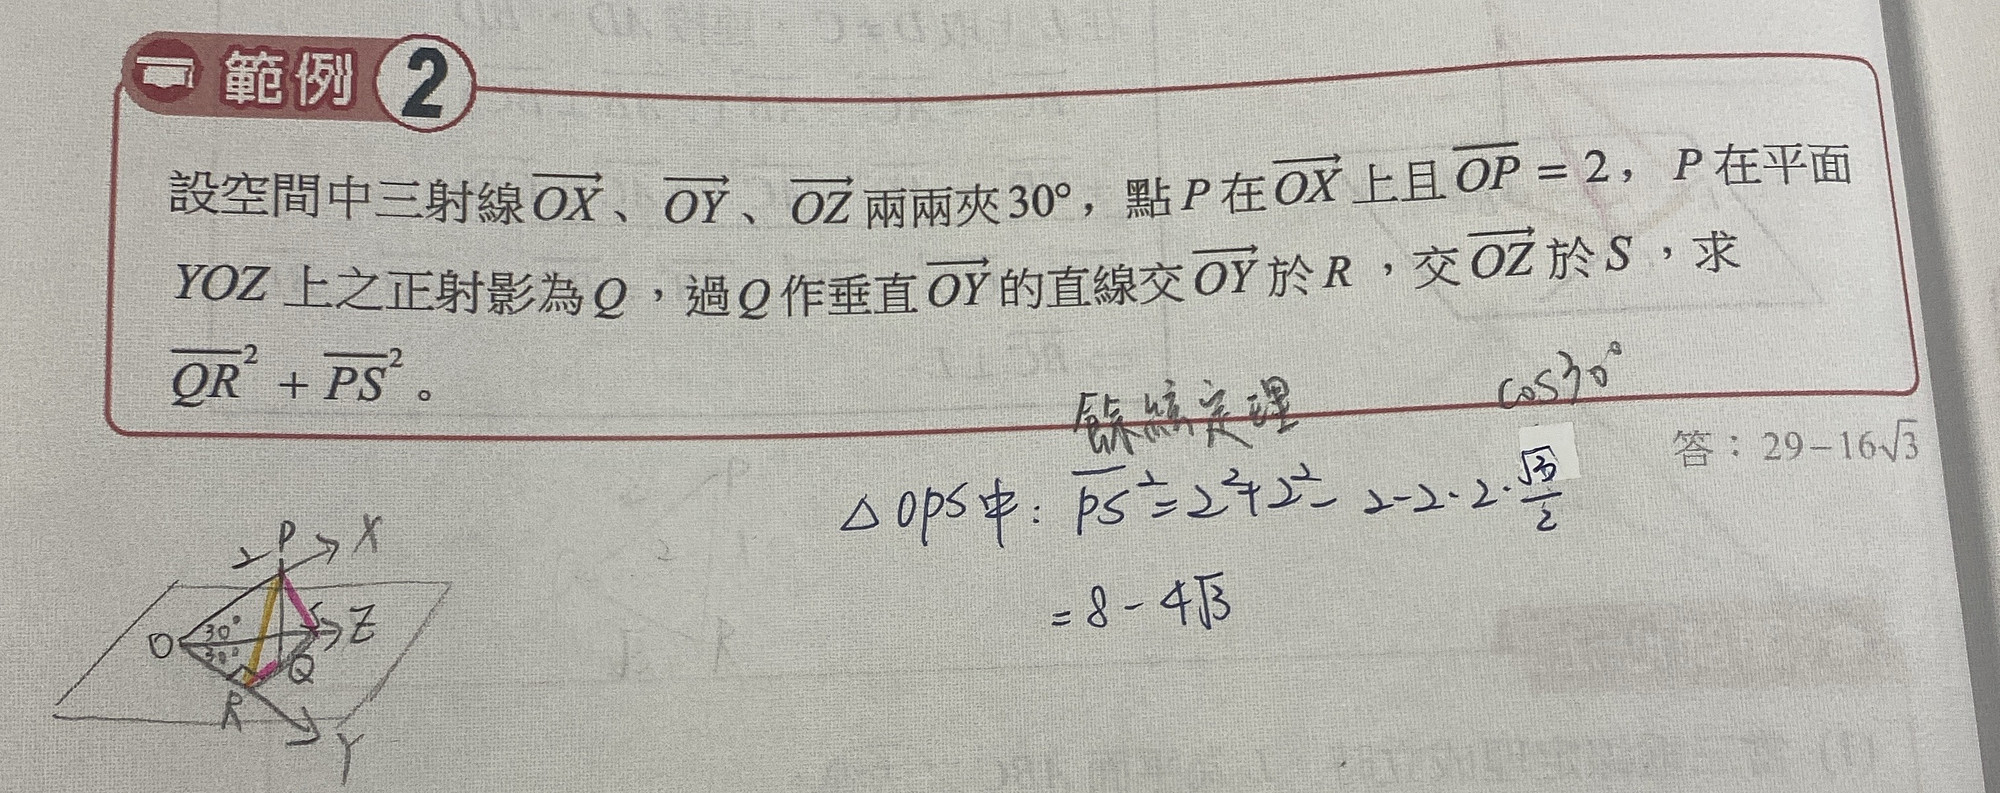 範例 2
設空間中三射線 OX、OY、OZ 兩兩夾 30°，點 P 在 OX 上且 OP = 2，P 在平面
YOZ 上之正射影為 Q，過 Q 作垂直 OY 的直線交 OY 於 R，交 OZ 於 S，求
QR² + PS²。
餘弦定理 cos30°
答：29−16√3
△OPS中: PS² = 2²+2² - 2-2·2·√3/2
= 8 - 4√3
2 P X
O 30° S Z
30° Q
R
Y